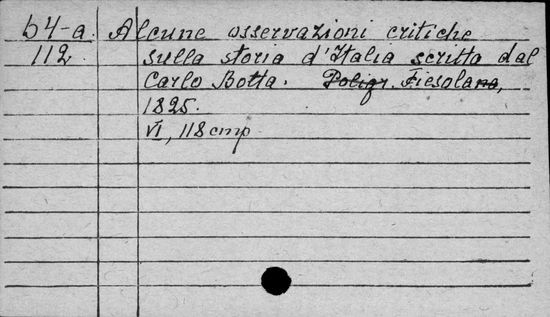 64-a. Alcune osservazioni critiche
112 sulla storia d'Italia scritta dal
Carlo Botta. Poligr. Fiesolana,
1825.
VI, 118 cmp